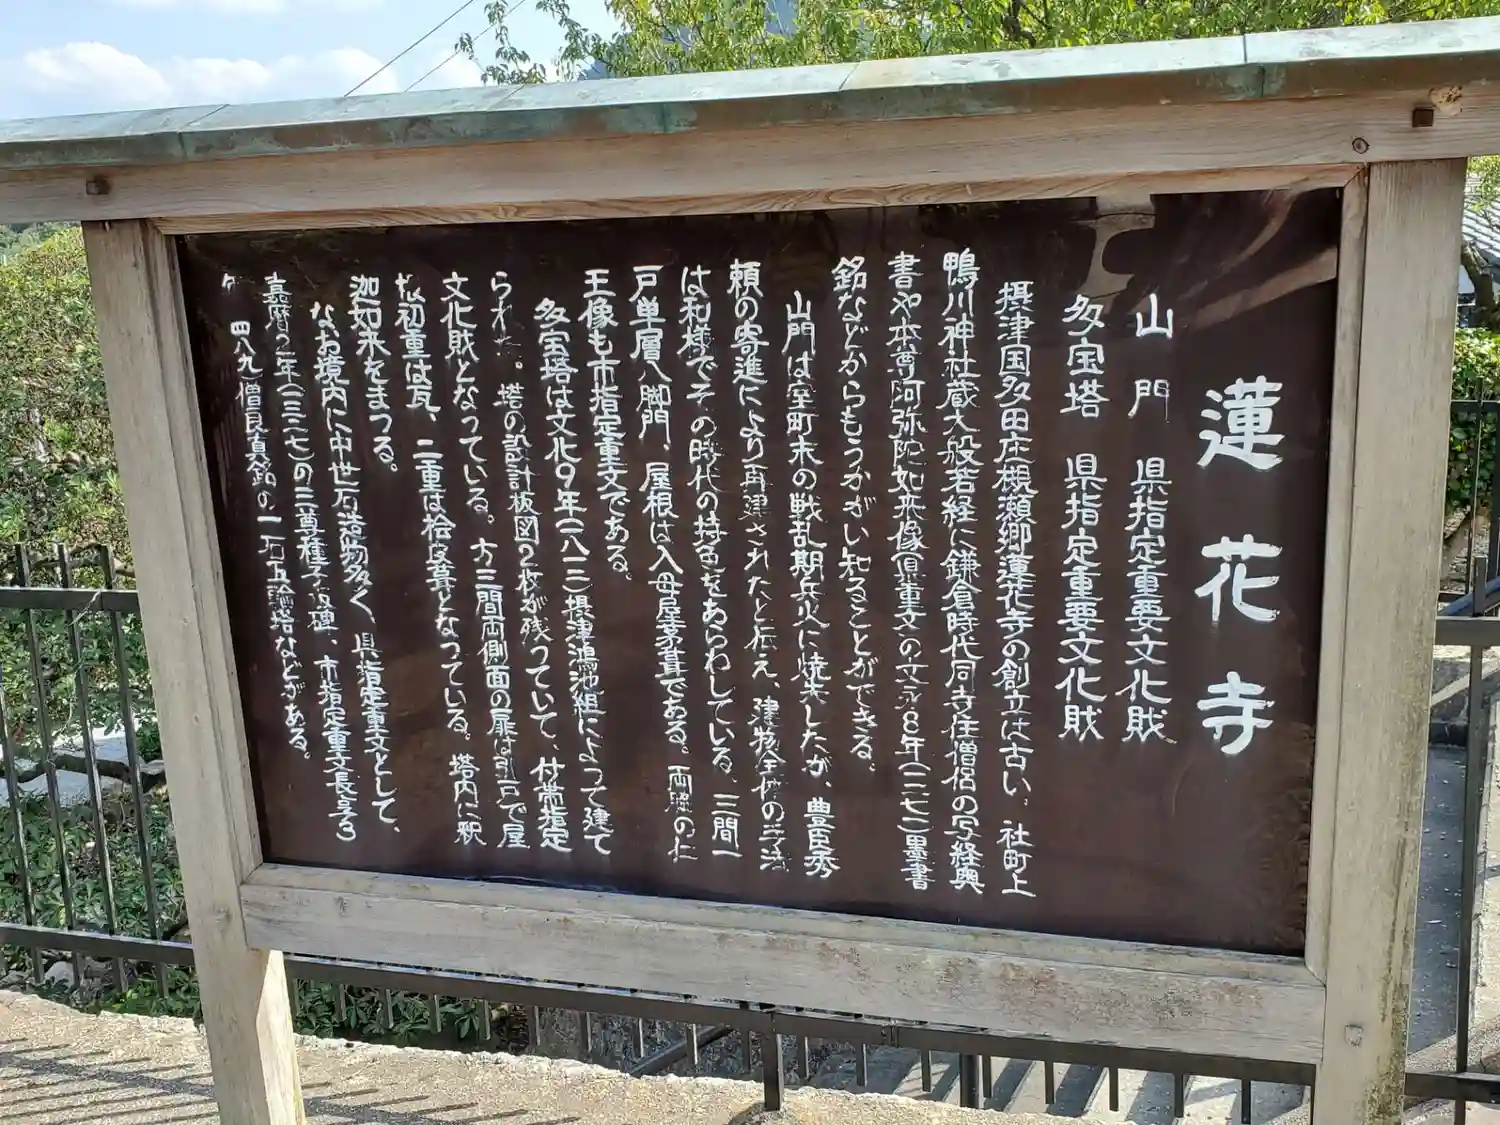 蓮花寺
山門 県指定重要文化財
多宝塔 県指定重要文化財
摂津国多田庄槻瀬郷蓮花寺の創立は古い。社町上
鴨川神社蔵大般若経に鎌倉時代同寺住僧侶の写経奥
書や本尊阿弥陀如来像(県重文)の文永8年(一二七一)墨書
銘などからもうかがい知ることができる。
山門は室町末の戦乱期兵火に焼失したが、豊臣秀
頼の寄進により再建されたと伝え、建物全体の手法
は和様でその時代の特色をあらわしている。三間一
戸単層八脚門、屋根は入母屋茅葺である。両脇の仁
王像も市指定重文である。
多宝塔は文化9年(一八一二)摂津鴻池組によって建て
られた。塔の設計板図2枚が残っていて、付帯指定
文化財となっている。方三間両側面の扉は引戸で屋
根初重は瓦、二重は桧皮葺となっている。塔内に釈
迦如来をまつる。
なお境内に中世石造物多く、県指定重文として、
嘉暦2年(一三二七)の三尊種子板碑、市指定重文長享3
年 四八九 僧良真銘の一石五輪塔などがある。